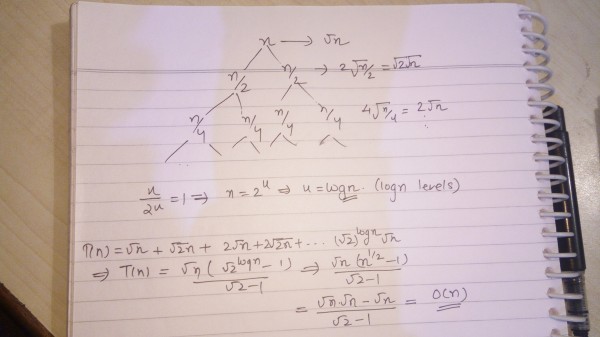 n → √n
n/2 n/2 → 2√n/2 = √2√n
n/4 n/4 n/4 n/4 4√n/4 = 2√n
⋮
n/2u = 1 ⇒ n = 2^u ⇒ u = logn. (logn levels)
T(n) = √n + √2n + 2√n + 2√2n + ... (√2)^logn √n
⇒ T(n) = √n (√2^logn - 1)/√2-1 ⇒ √n (n^1/2 - 1)/√2-1
= √n √n - √n/√2-1 = O(n)